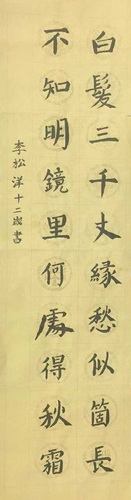 白髮三千丈緣愁似箇長
不知明鏡里何處得秋霜
李松洋十二歲書